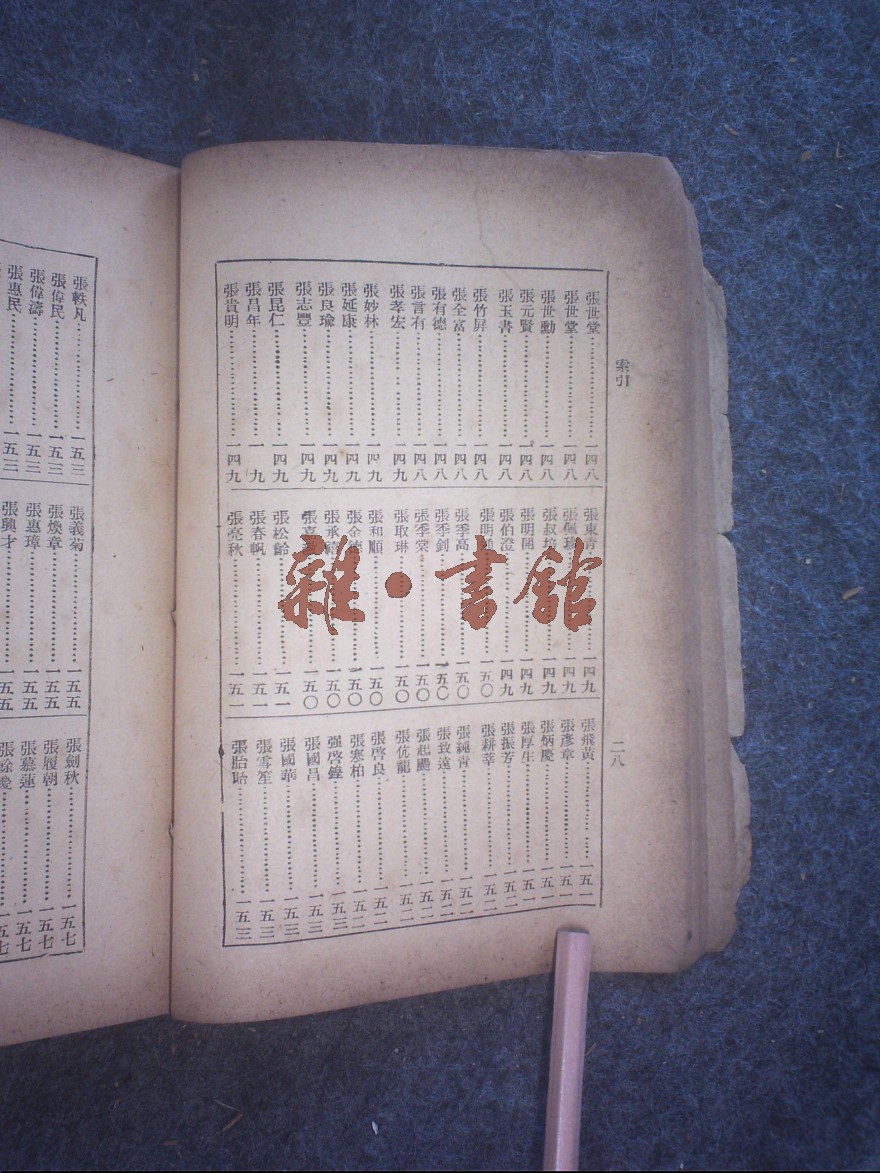 索引
二八
張世堂…………一四八
張世堂…………一四八
張世勳…………一四八
張元賢…………一四八
張玉書…………一四八
張竹屏…………一四八
張全富…………一四八
張有德…………一四八
張言有…………一四八
張孝宏…………一四九
張妙林…………一四九
張延康…………一四九
張良瑜…………一四九
張志豐…………一四九
張昆仁…………一四九
張昌年…………一九
張貴明…………一四九
張東青…………一四九
張佩珍…………一四九
張叔培…………一四九
張明開…………一四九
張伯澄…………一四九
張明…………一五〇
張季高…………一五〇
張季釗…………一五〇
張季棠…………一五〇
張取琳…………一五〇
張和順…………一五〇
張金德…………一五〇
張承…………一五〇
張嘉…………一五〇
張松齡…………一五一
張春帆…………一五一
張亮秋…………一五一
張飛黃…………一五一
張彥章…………一五一
張炳慶…………一五一
張厚生…………一五一
張振芳…………一五二
張耕莘…………一五二
張純青…………一五二
張致遠…………一五二
張起
張伉龍…………一五二
張啓良…………一五二
張寒柏…………一五二
張國昌…………一五三
張國華…………一五三
張雪笙…………一五三
張胎貽…………一五三
張軼凡…………一五三
張偉民…………一五三
張偉濤…………一五三
張惠民…………一五三
張義菊…………一五五
張煥章…………一五五
張惠璋…………一五五
張興才…………一五五
張劍秋…………一五七
張履朝…………一五七
張慕蓮…………一五七
雜·書館